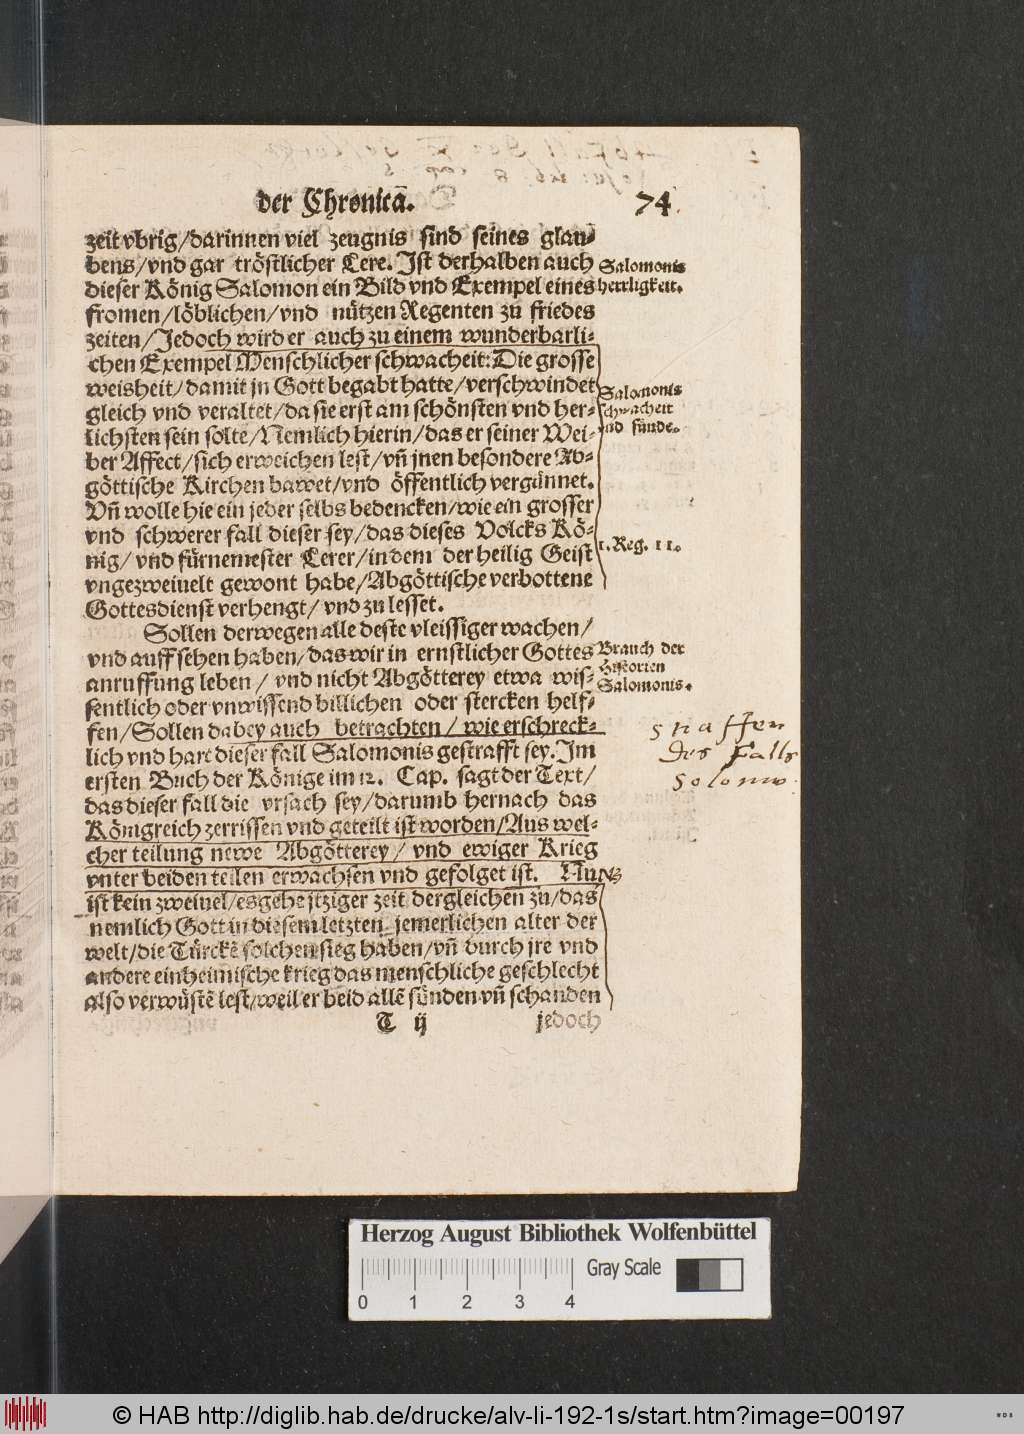 der Chronicā.
74
zeit vbrig/darinnen viel zeugnis sind seines glau-
bens/vnd gar tröstlicher Lere. Ist derhalben auch
Salomonis
dieser König Salomon ein Bild vnd Exempel eines
herrligkeit.
fromen/löblichen/vnd nützen Regenten zu friedes
zeiten/Jedoch wird er auch zu einem wunderbarli-
chen Exempel Menschlicher schwacheit: Die grosse
weisheit/damit jn Gott begabt hatte/verschwindet
Salomonis
gleich vnd veraltet/da sie erst am schönsten vnd her-
schwacheit
lichsten sein solte/Nemlich hierin/das er seiner Wei-
vnd sünde.
ber Affect/sich erweichen lest/vñ jnen besondere Ab-
göttische Kirchen bawet/vnd öffentlich vergünnet.
Vñ wolle hie ein jeder selbs bedencken/wie ein grosser
vnd schwerer fall dieser sey/das dieses Volcks Kö-
nig/vnd fürnemester Lerer/in dem der heilig Geist
1. Reg. 11.
vngezweiuelt gewont habe/Abgöttische verbottene
Gottesdienst verhengt/vnd zu lesset.
Sollen derwegen alle deste vleissiger wachen/
vnd auffsehen haben/das wir in ernstlicher Gottes
Brauch der
Historien
anruffung leben/vnd nicht Abgötterey etwa wis-
Salomonis.
sentlich oder vnwissend billichen oder stercken helf-
fen/Sollen dabey auch betrachten/wie erschreck-
straffen
lich vnd hart dieser fall Salomonis gestrafft sey. Im
des Falls
ersten Buch der Könige im 12. Cap. sagt der Text/
Solomo.
das dieser fall die vrsach sey/darumb hernach das
Königreich zerrissen vnd geteilt ist worden/Aus wel-
cher teilung newe Abgötterey/vnd ewiger Krieg
vnter beiden teilen erwachsen vnd gefolget ist. Nu
NB
ist kein zweiuel/es gehe jtziger zeit dergleichen zu/das
nemlich Gott in diesem letzten jemerlichen alter der
welt/die Türckē solchen sieg haben/vñ durch jre vnd
andere einheimische krieg das menschliche geschlecht
also verwüstē lest/weil er beid allē sünden vñ schanden
T ij
jedoch
Herzog August Bibliothek Wolfenbüttel
Gray Scale
0 1 2 3 4
© HAB http://diglib.hab.de/drucke/alv-li-192-1s/start.htm?image=00197